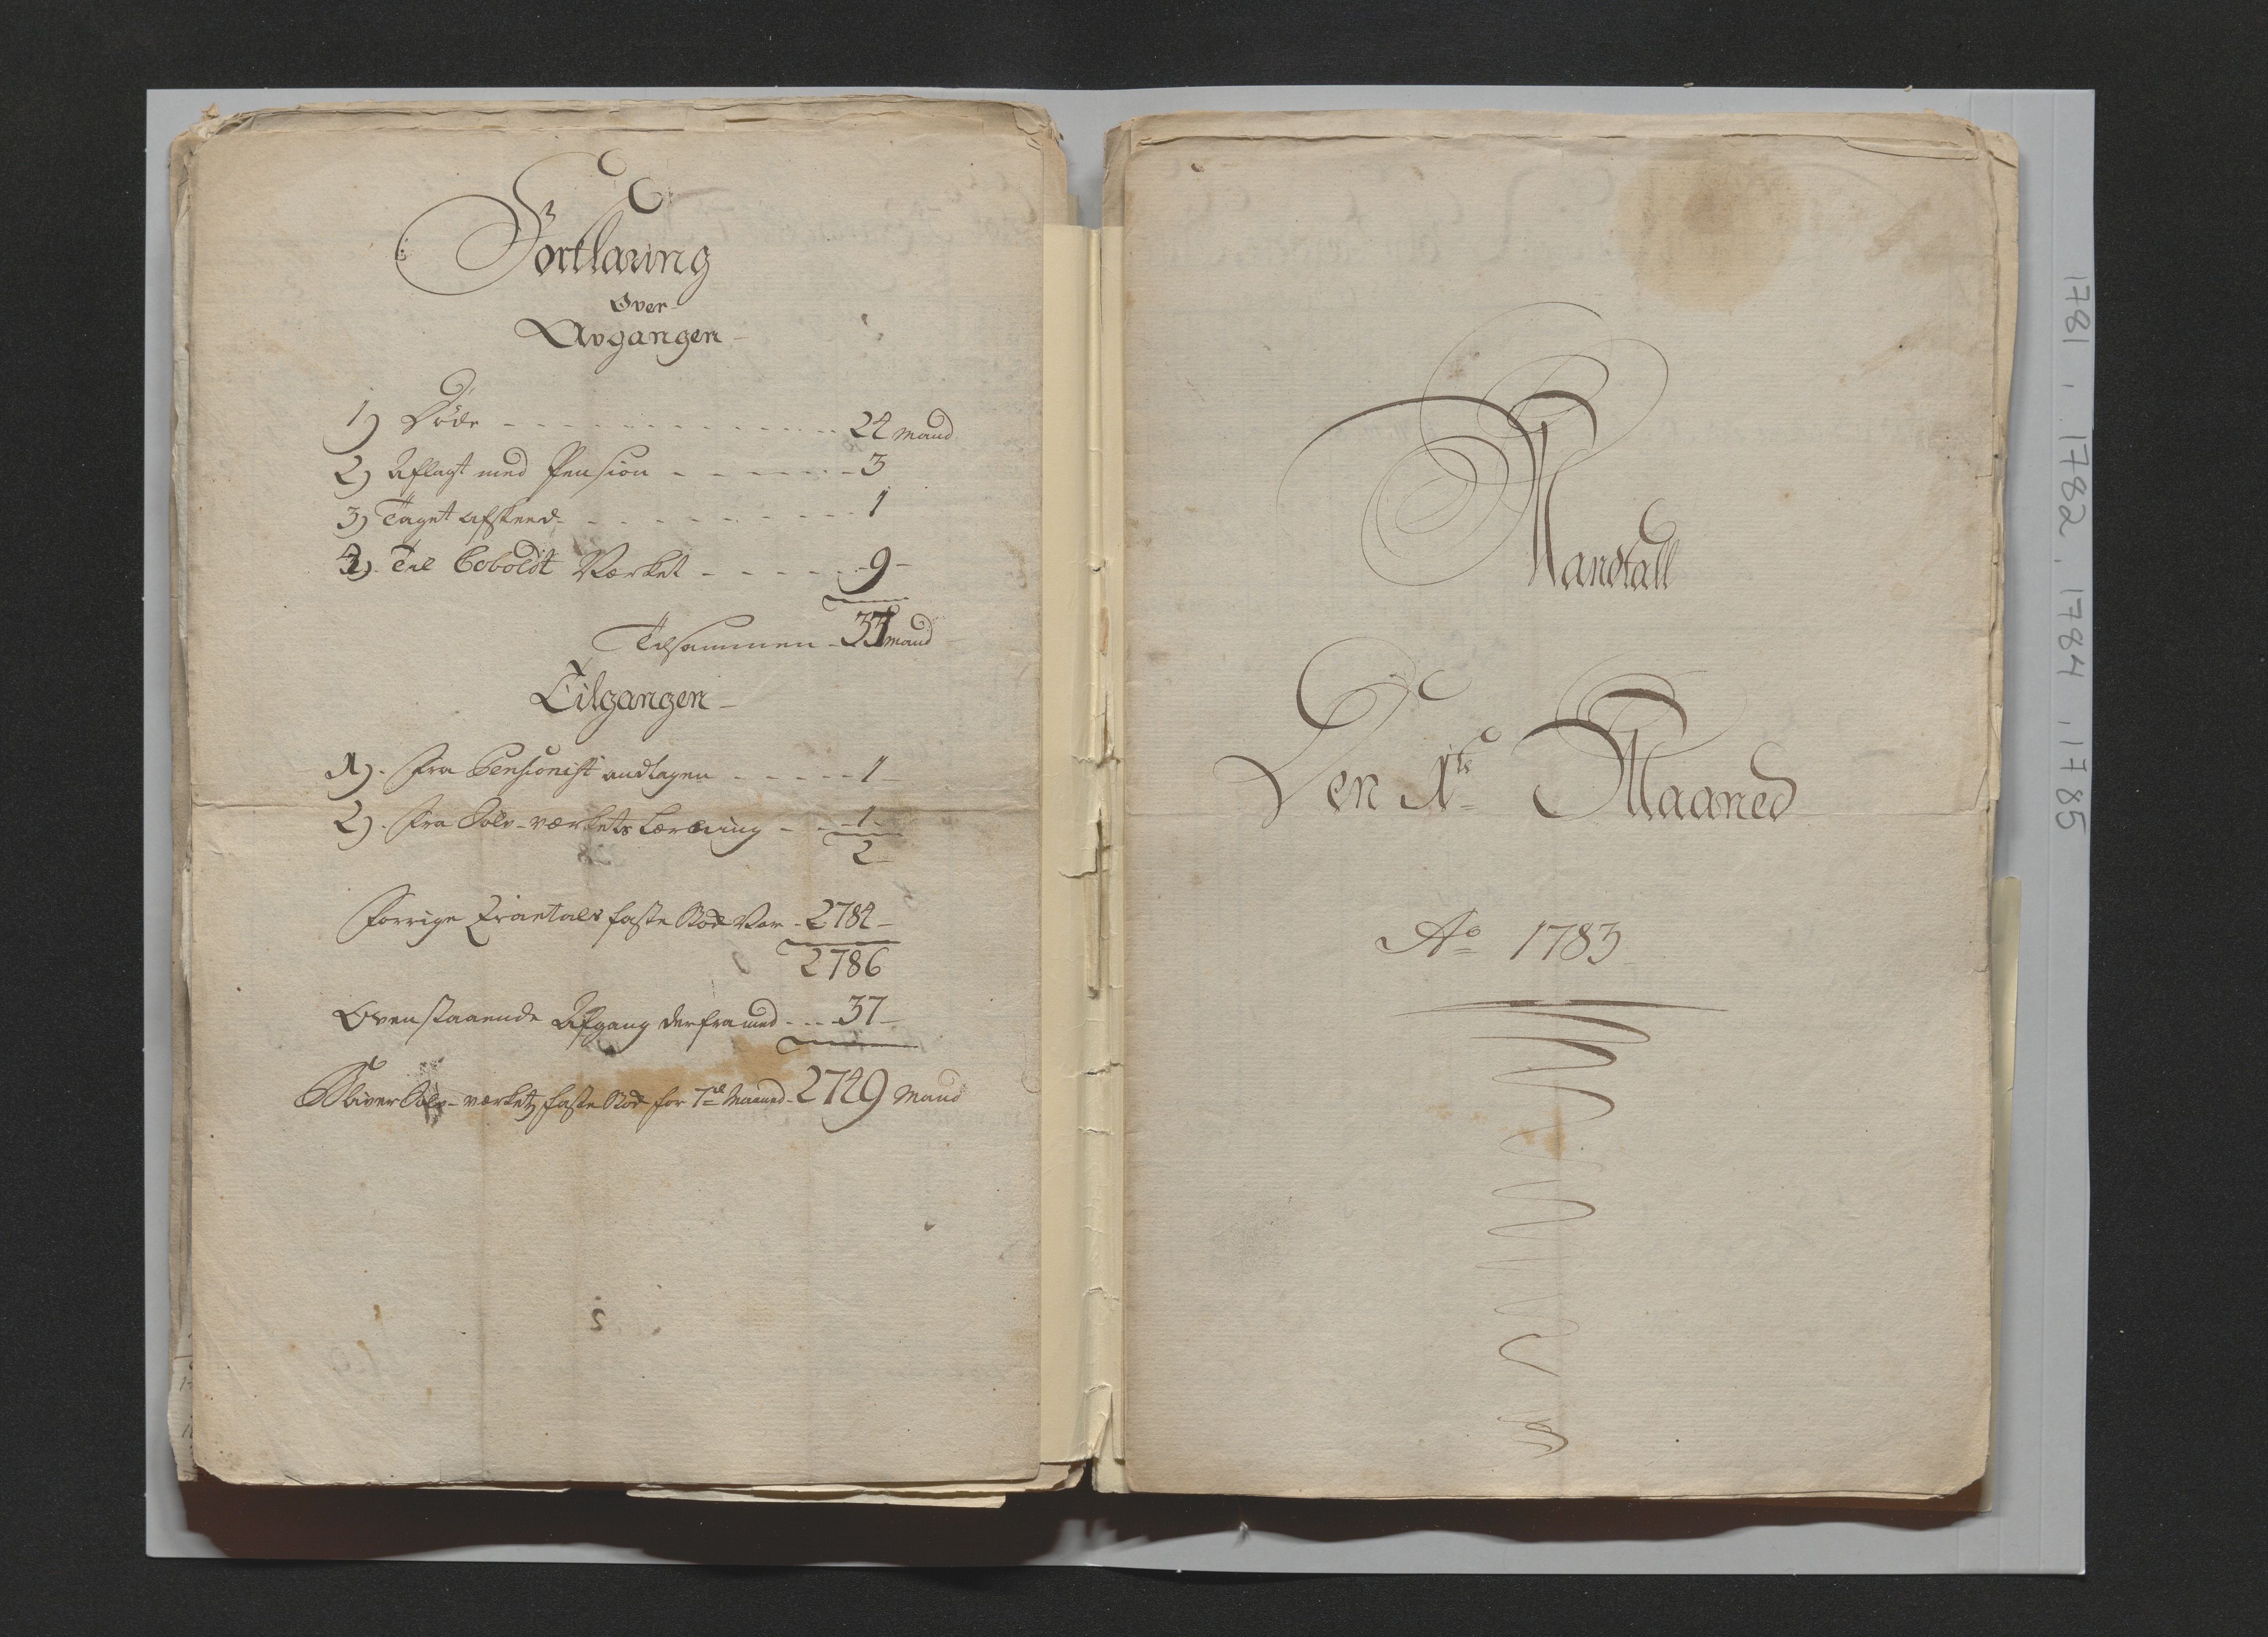 Forklaring
Over
Avgangen
1) Døde 24 mand
2) Aflagt med Pension 3
3) Taget afskeed 1
4) Til Coboldt Værket 9
Tilsammen 37 mand
Tilgangen
1). fra Pensionist andtagen 1
2). fra Sølv-værkets 1
2
Forrige faste Stok Var 2784
2786
Ovenstaaende Afgang derfra med 37
Bliver Sølv-værkets faste Stok for 7de Maaned 2749 Mand
Mandtall
Den 1te Maaned
Ao 1783
1781, 1782, 1784, 1785